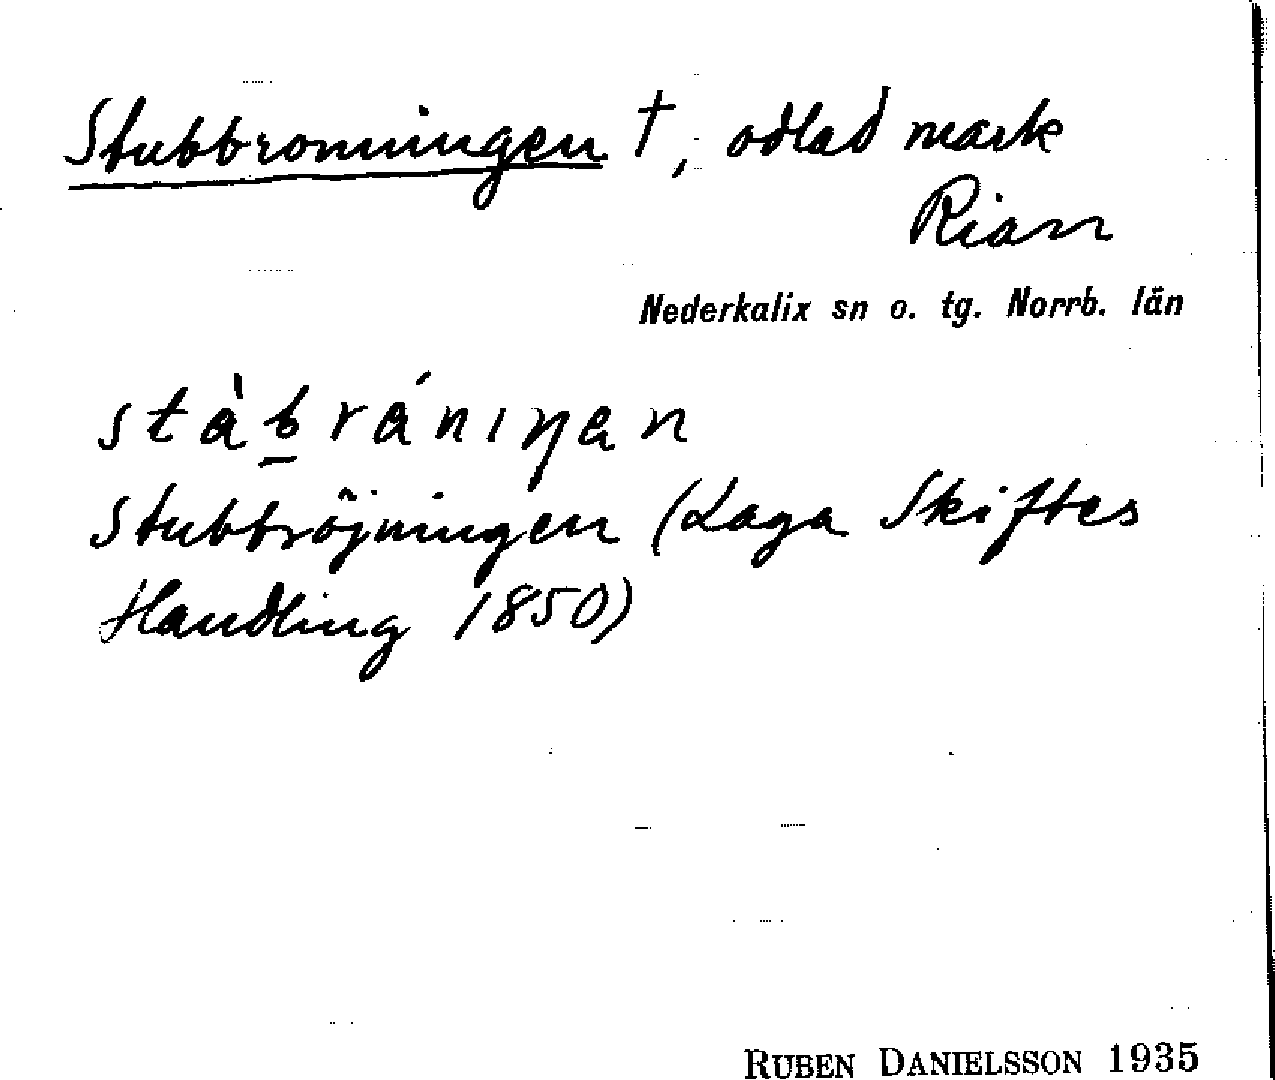 Stubbronningen †, odlad mark
Rian
Nederkalix sn o. tg. Norrb. län
stàb̲rániŋan
Stubbröjningen (Laga Skiftes
Handling 1850)
RUBEN DANIELSSON 1935